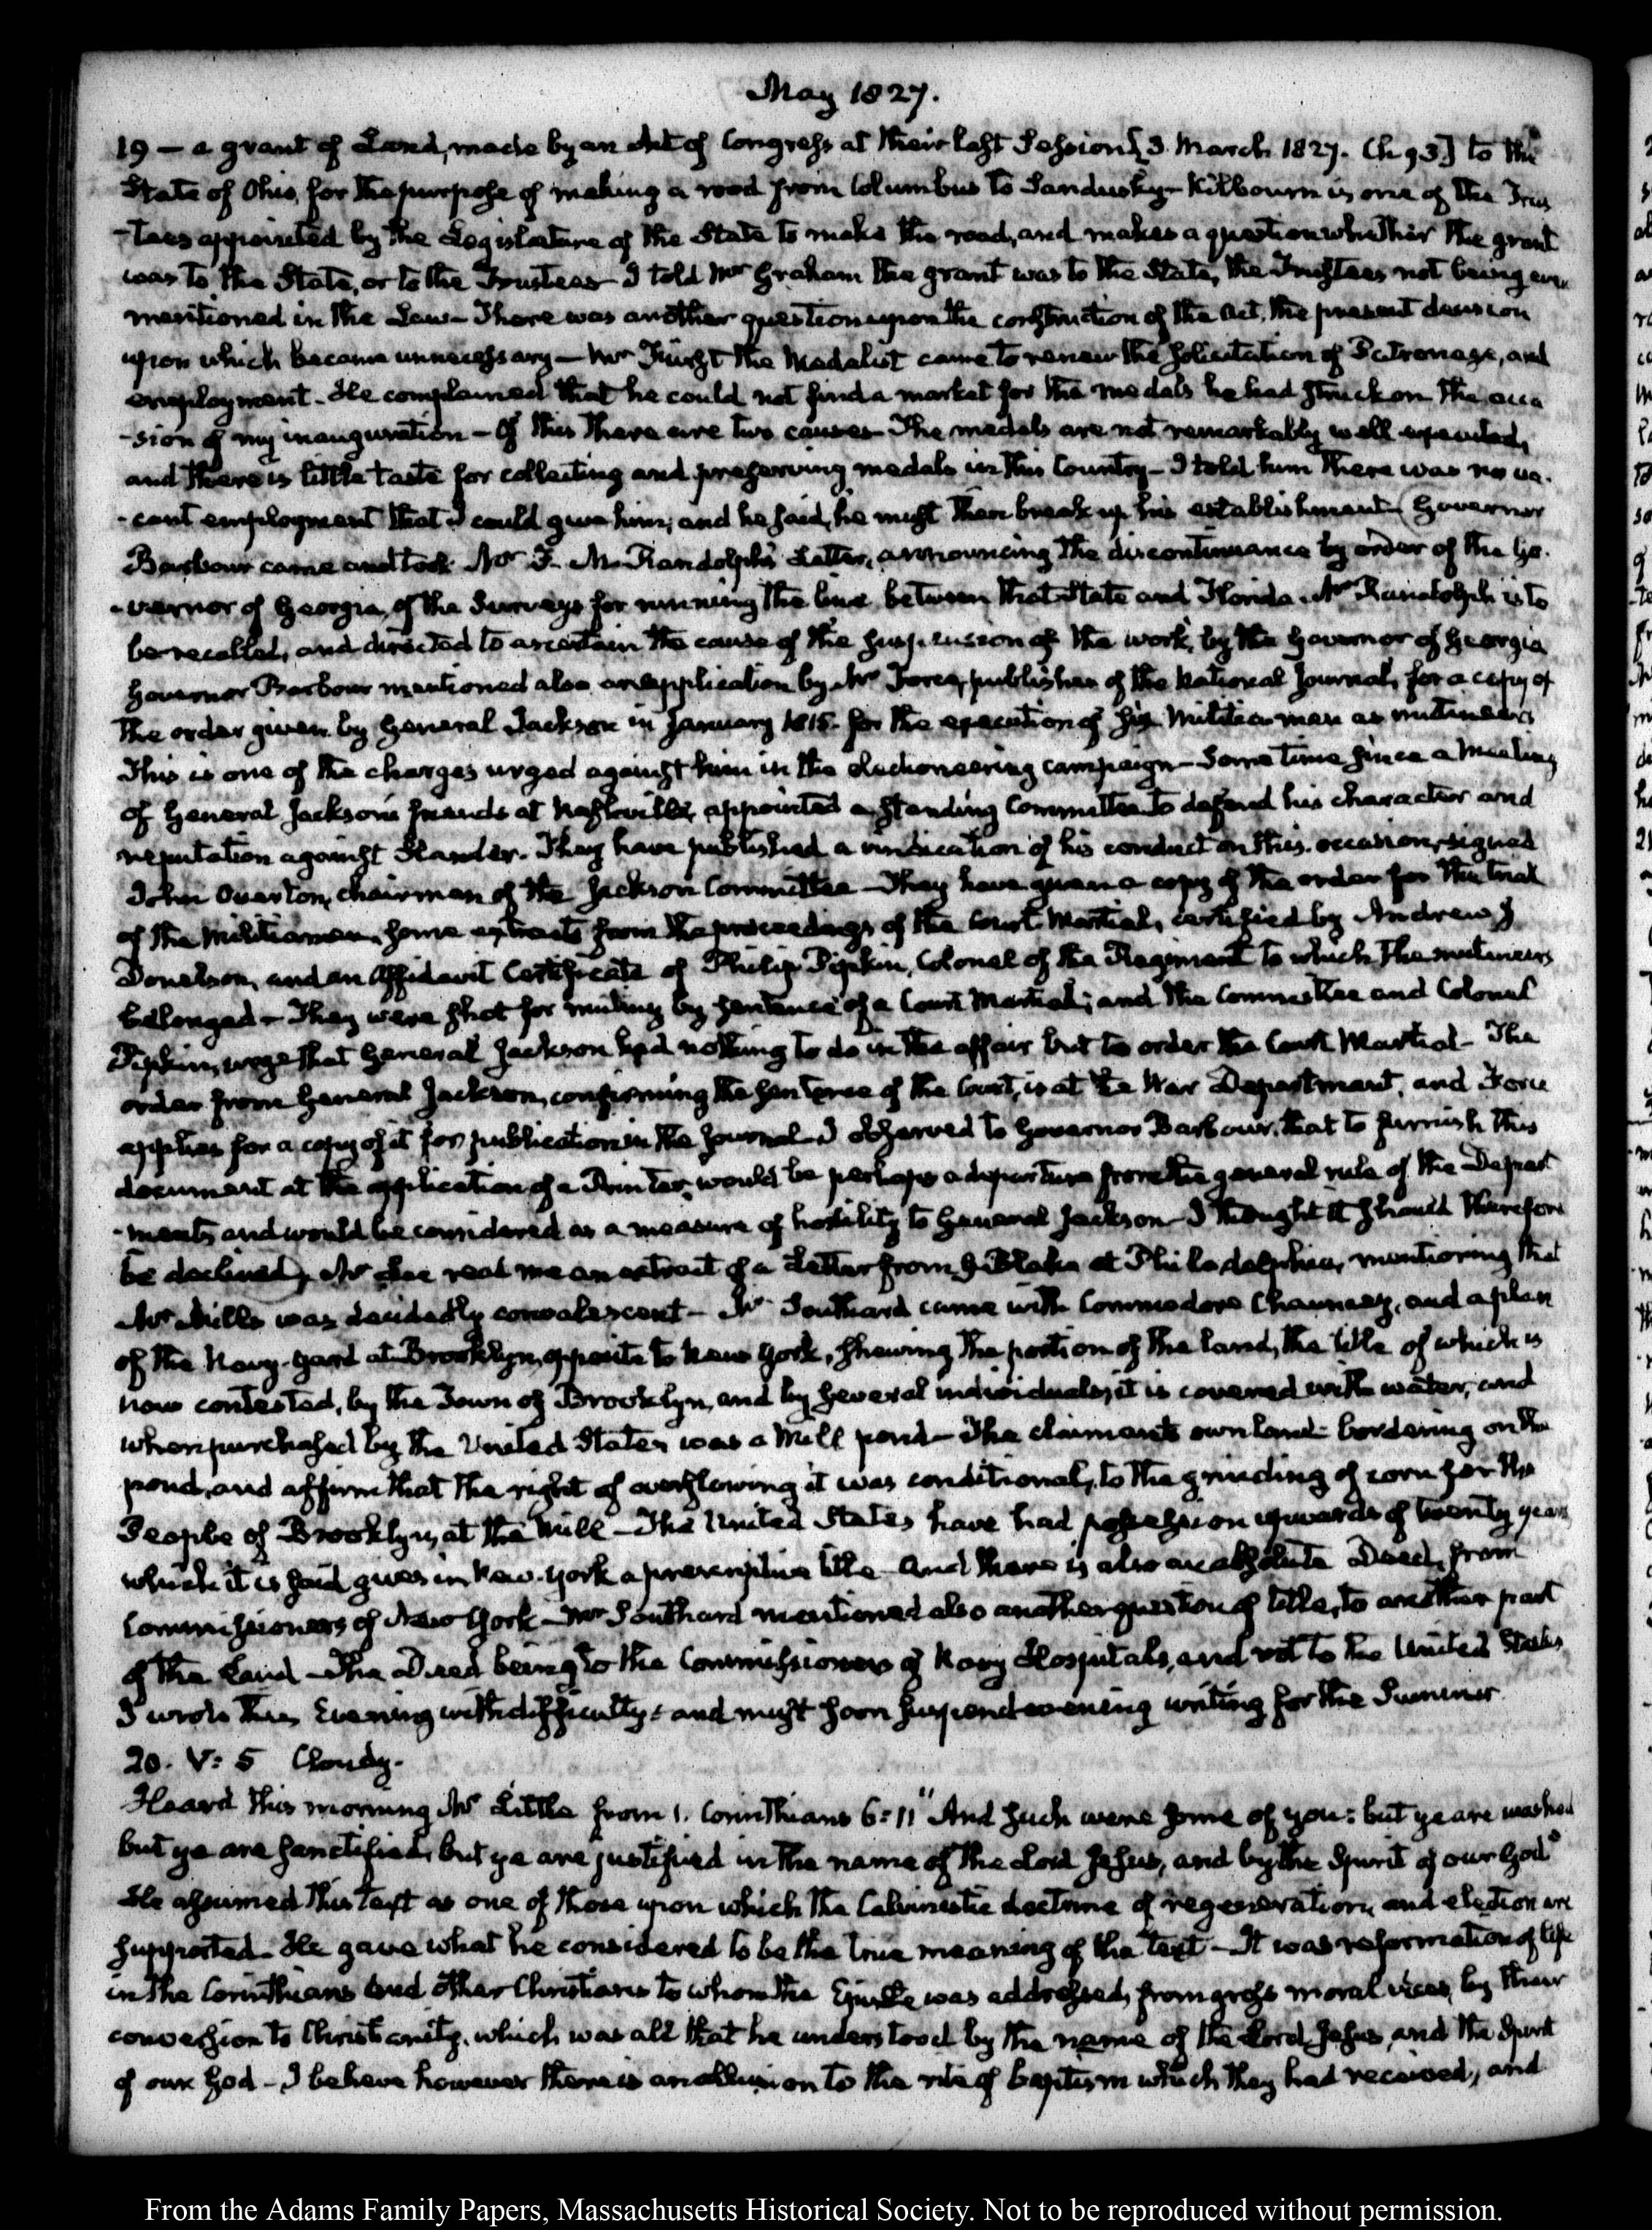 May 1827.
19 — a grant of Land, made by an Act of Congress at their last Session [3 March 1827. Ch 93] to the
State of Ohio, for the purpose of making a road from Columbus to Sandusky — Kilbourn is one of the Trus
-tees appointed by the Legislature of the State to make the road, and makes a question whether the grant
was to the State, or to the Trustees — I told Mr Graham the grant was to the State, the Trustees not being even
mentioned in the Law — There was another question upon the construction of the Act, the present decision
upon which became unnecessary — Mr Furst the Medalist came to renew the solicitation of Patronage, and
employment — He complained that he could not find a market for the medals he had struck on the occa
-sion of my inauguration — Of this there are two causes — The medals are not remarkably well executed,
and there is little taste for collecting and preserving medals in this Country — I told him there was no va-
-cant employment that I could give him; and he said, he must then break up his establishment — (Governor
Barbour came and took Mr T. M. Randolph's Letter, announcing the discontinuance by order of the Go-
-vernor of Georgia, of the Surveys for running the line between that State and Florida. Mr Randolph is to
be recalled, and directed to ascertain the cause of the suspension of the work, by the Governor of Georgia
Governor Barbour mentioned also an application by Mr Force, publisher of the National Journal, for a copy of
the order given by General Jackson in January 1815. for the execution of six Militia men as mutineers
This is one of the charges urged against him in the electioneering campaign — Some time since a Meeting
of General Jackson's friends at Nashville, appointed a standing Committee to defend his character and
reputation against Slander. They have published a vindication of his conduct on this occasion, signed
John Overton, chairman of the Jackson Committee — They have given a copy of the order for the trial
of the Militiamen, some extracts from the proceedings of the Court Martial, certified by Andrew J
Donelson, and an Affidavit Certificate of Philip Pipkin, Colonel of the Regiment to which the mutineers
belonged — They were shot for mutiny by sentence of a Court Martial; and the Committee and Colonel
Pipkin, urge that General Jackson had nothing to do in the affair but to order the Court Martial — The
order from General Jackson, confirming the sentence of the Court, is at the War Department, and Force
applies for a copy of it for publication in the Journal — I observed to Governor Barbour, that to furnish this
document at the application of a Printer, would be perhaps a departure from the general rule of the Depart
-ments and would be considered as a measure of hostility to General Jackson — I thought it should therefore
be declined). Mr Lee read me an extract of a Letter from G. Blake at Philadelphia, mentioning that
Mr Mills was decidedly convalescent — Mr Southard came with Commodore Chauncey, and a plan
of the Navy-Yard at Brooklyn, opposite to New York, shewing the portion of the land, the title of which is
now contested, by the Town of Brooklyn, and by several individuals; it is covered with water, and
when purchased by the United States was a Mill pond — The claimants own land bordering on the
pond, and affirm that the right of overflowing it was conditional, to the grinding of corn for the
People of Brooklyn, at the Mill — The United States have had possession upwards of twenty years
which it is said gives in New-York a prescriptive title — And there is also an absolute Deed, from
Commissioners of New York — Mr Southard mentioned also another question of title, to another part
of the Land — The Deed being to the Commissioners of Navy Hospitals, and not to the United States,
I wrote this Evening with difficulty; and must soon suspend evening writing for the Summer
20. V: 5 Cloudy.
Heard this morning Mr Little from 1. Corinthians 6:11 "And such were some of you: but ye are washed
but ye are sanctified, but ye are justified in the name of the Lord Jesus, and by the Spirit of our God"
He assumed this text as one of those upon which the Calvinistic doctrine of regeneration, and election are
supported. He gave what he considered to be the true meaning of the text — It was reformation of life
in the Corinthians and other Christians to whom the Epistle was addressed, from gross moral vices, by their
conversion to Christianity, which was all that he understood by the name of the Lord Jesus, and the Spirit
of our God — I believe however there is an allusion to the rite of baptism which they had received, and
From the Adams Family Papers, Massachusetts Historical Society. Not to be reproduced without permission.